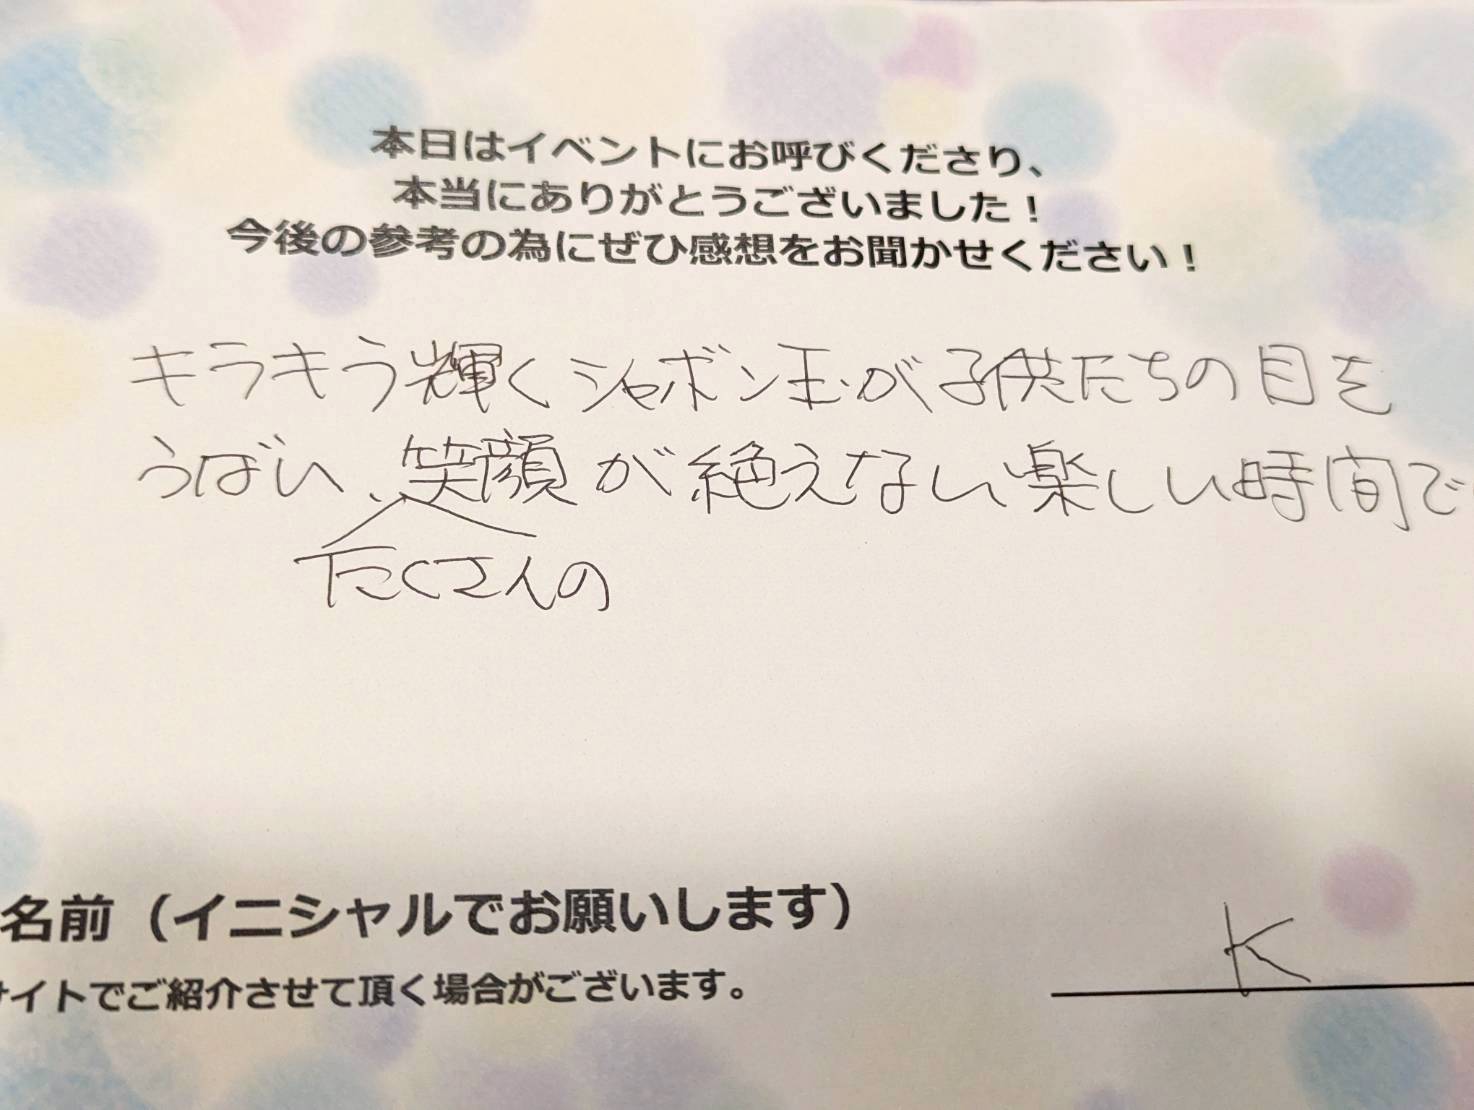 本日はイベントにお呼びくださり、
本当にありがとうございました！
今後の参考の為にぜひ感想をお聞かせください！
キラキラ輝くシャボン玉が子供たちの目を
うばい、笑顔が絶えない楽しい時間で
たくさんの
名前（イニシャルでお願いします）
K
サイトでご紹介させて頂く場合がございます。